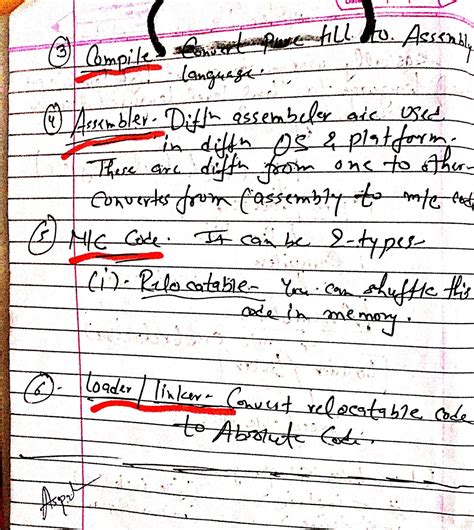 ③ Compile - Convert Pure fill to Assembly
language.
④ Assembler - Diffn assembeler are used
in diffn OS & platform.
These are diffn from one to other-
Convertes from (assembly to m/c code
⑤ M/C Code. It can be 2-types-
(i)- Relocatable- You can shuffle this
code in memory.
⑥- Loader/linker- Convert relocatable code
to Absolute Code.